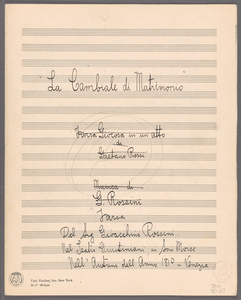 "La Cambiale di Matrimonio"
Farsa Giocosa in un atto
da
Gaetano Rossi
Musica di
G. Rossini
Farsa
Del Sig Gioacchino Rossini
Nel Teatro Giustiniani in San Moise
Nell' Autunno dell' Anno 1810 – Venezia
Carl Fischer, Inc. New York.